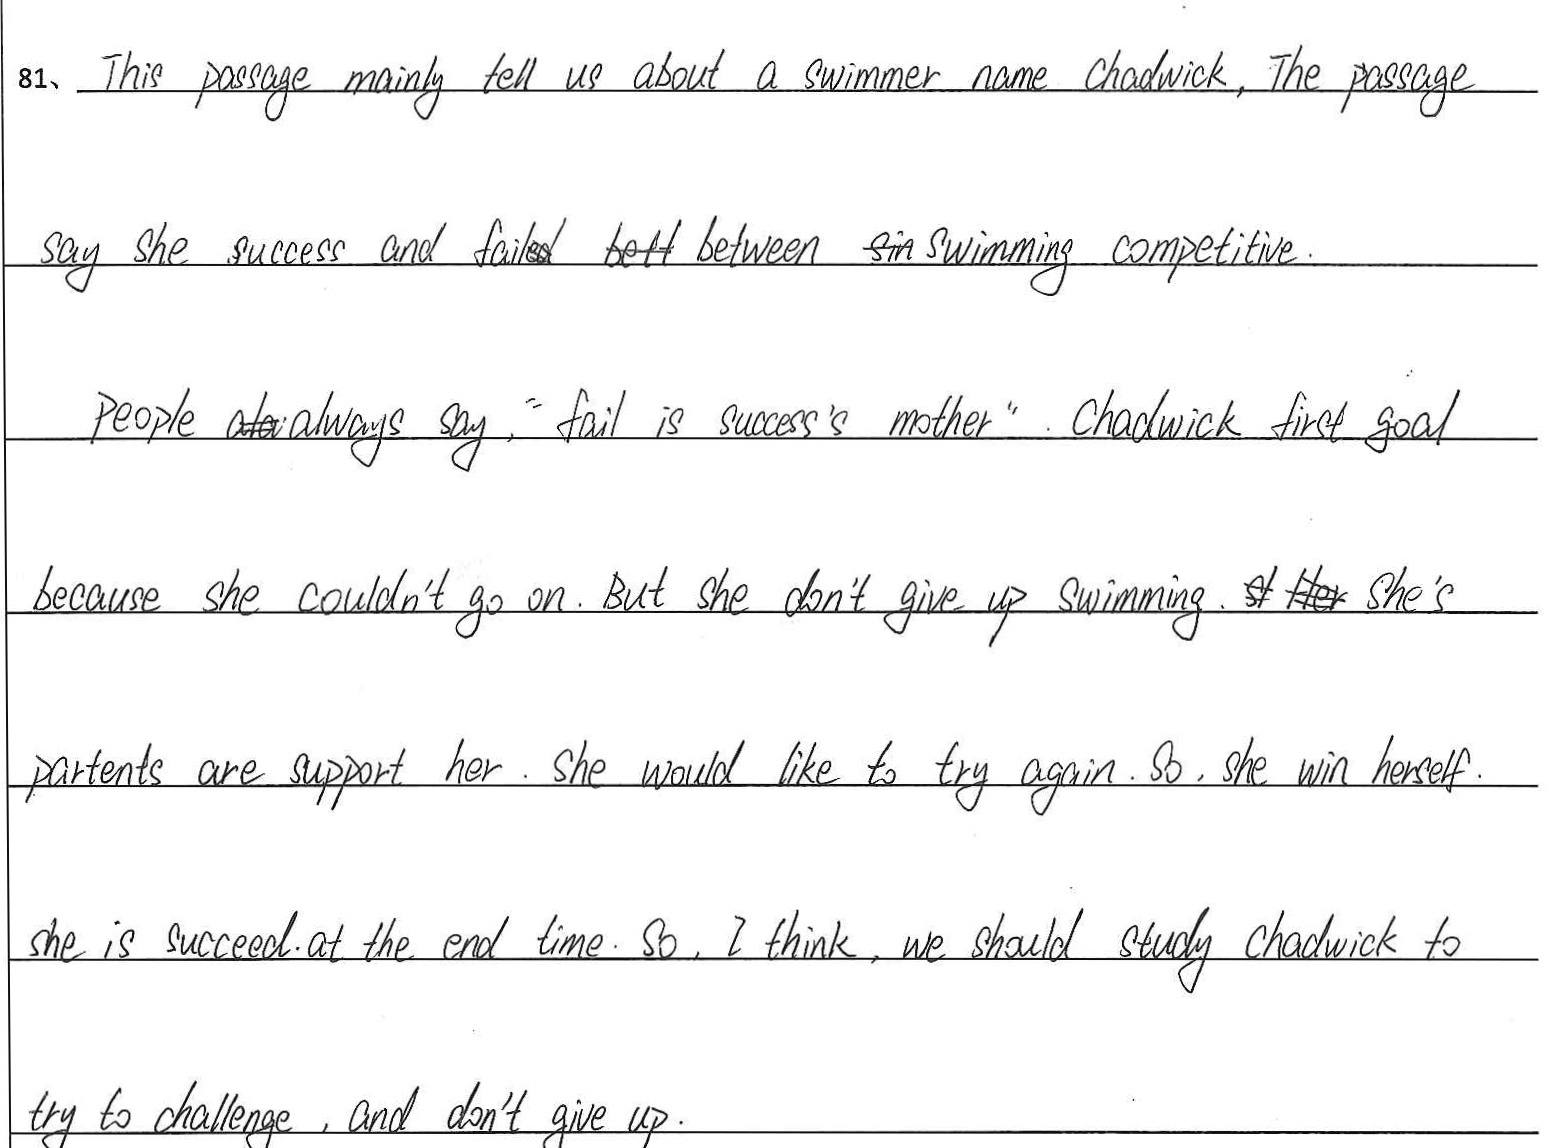 81、 This passage mainly tell us about a swimmer name Chadwick, The passage
say she success and failed between swimming competitive.
People always say, "fail is success's mother". Chadwick first goal
because she couldn't go on. But she don't give up swimming. She's
partents are support her. She would like to try again. So, she win herself.
she is succeed. at the end time. So, I think, we should study Chadwick to
try to challenge, and don't give up.